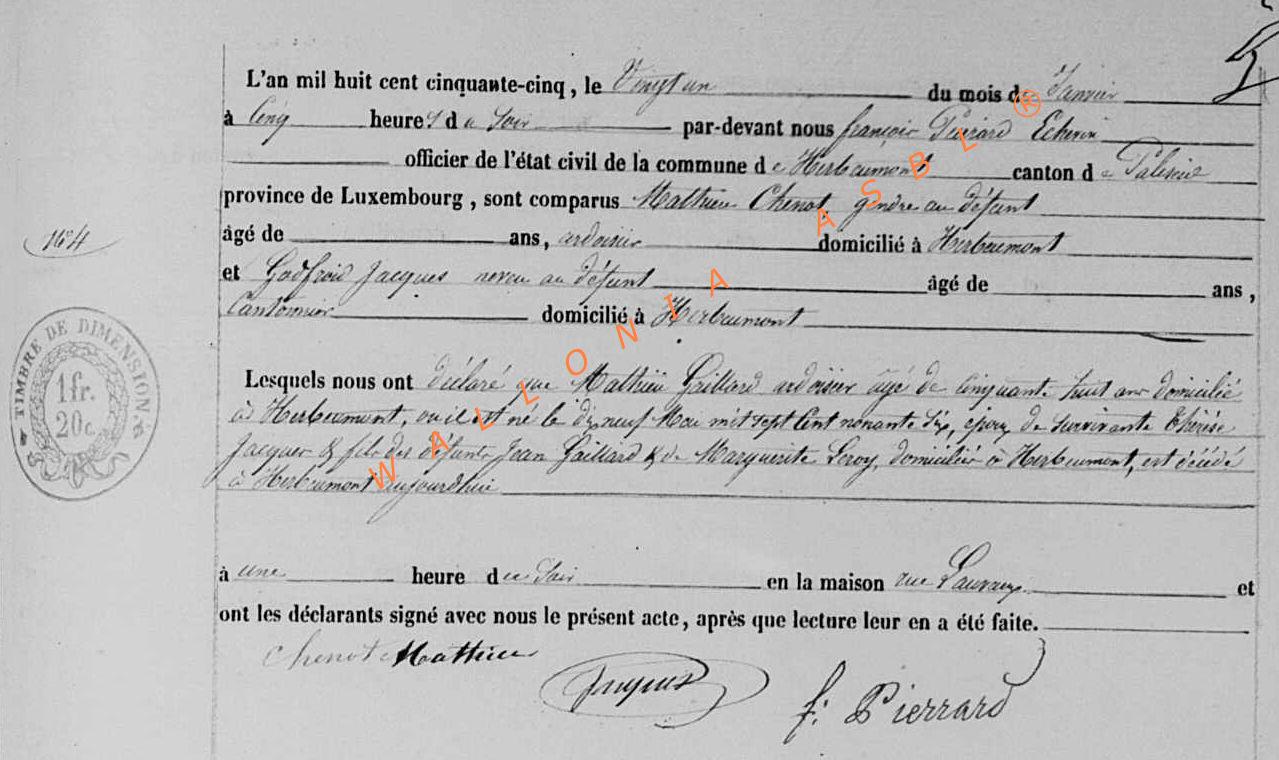 L'an mil huit cent cinquante-cinq, le Vingt un du mois de Janvier
à Cinq heures du Soir par-devant nous françois Pierard Echevin
officier de l'état civil de la commune de Herbeumont canton de Paliseul
province de Luxembourg, sont comparus Mathieu Chenot gendre au défunt
N° 4
âgé de ans, ardoisier domicilié à Herbeumont
et Godfroid Jacques neveu au défunt âgé de ans,
Cantonnier domicilié à Herbeumont
TIMBRE DE DIMENSION
1 fr.
20 c.
Lesquels nous ont déclaré que Mathieu Gaillard ardoisier agé de Cinquante huit ans domicilié
à Herbeumont, ou il est né le dix neuf Mai mil sept Cent nonante Six, époux de Survivante Thérèse
Jacques & fils des défunts Jean Gaillard & de Marguerite Leroy, domiciliés à Herbeumont, est décédé
à Herbeumont aujourdhui
à une heure du Soir en la maison rue et
ont les déclarants signé avec nous le présent acte, après que lecture leur en a été faite.
Chenot Matthieu
Jacques
f: Pierrard
WALLONIA ASBL ®